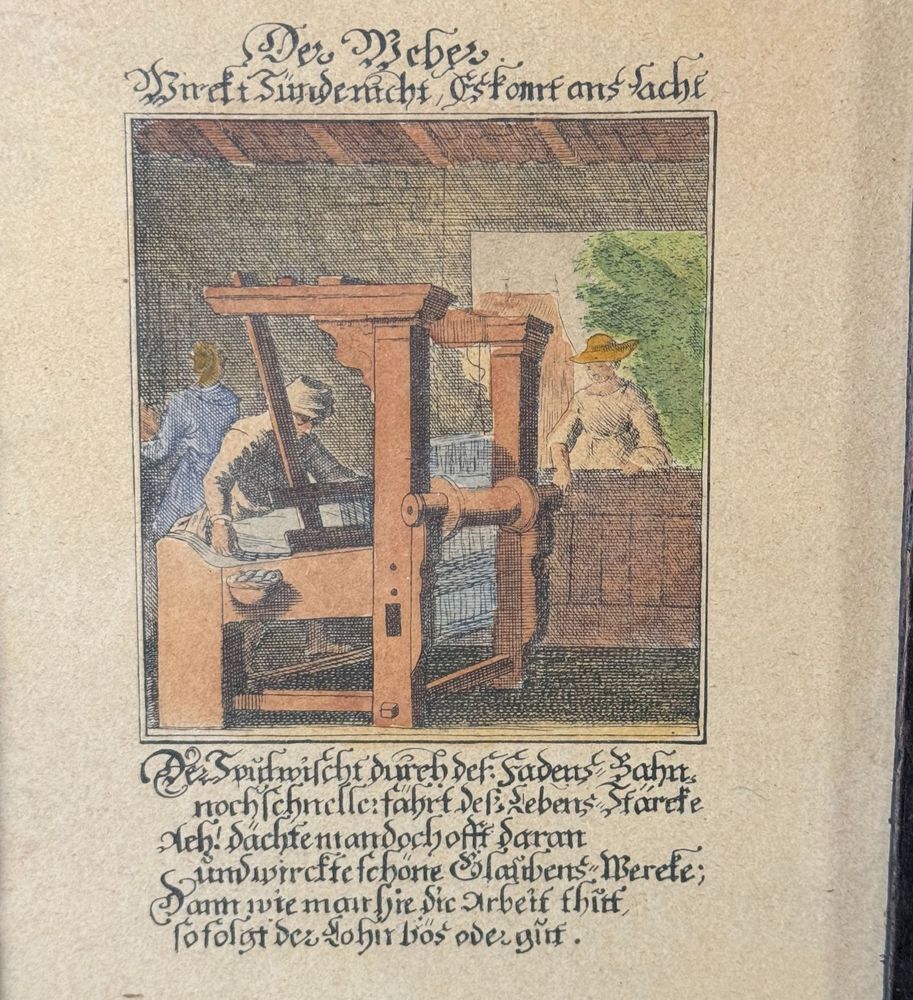 Der Weber.
Wirckt Sünde nicht, Es komt ans Liecht
Der Spul wischt durch deß Fadens-Bahn,
noch schneller fährt deß Lebens-Stärcke
Ach! dächte man doch offt daran
und wirckte schöne Glaubens-Wercke;
Dann wie man hie die Arbeit thut,
so folgt der Lohn bös oder gut.